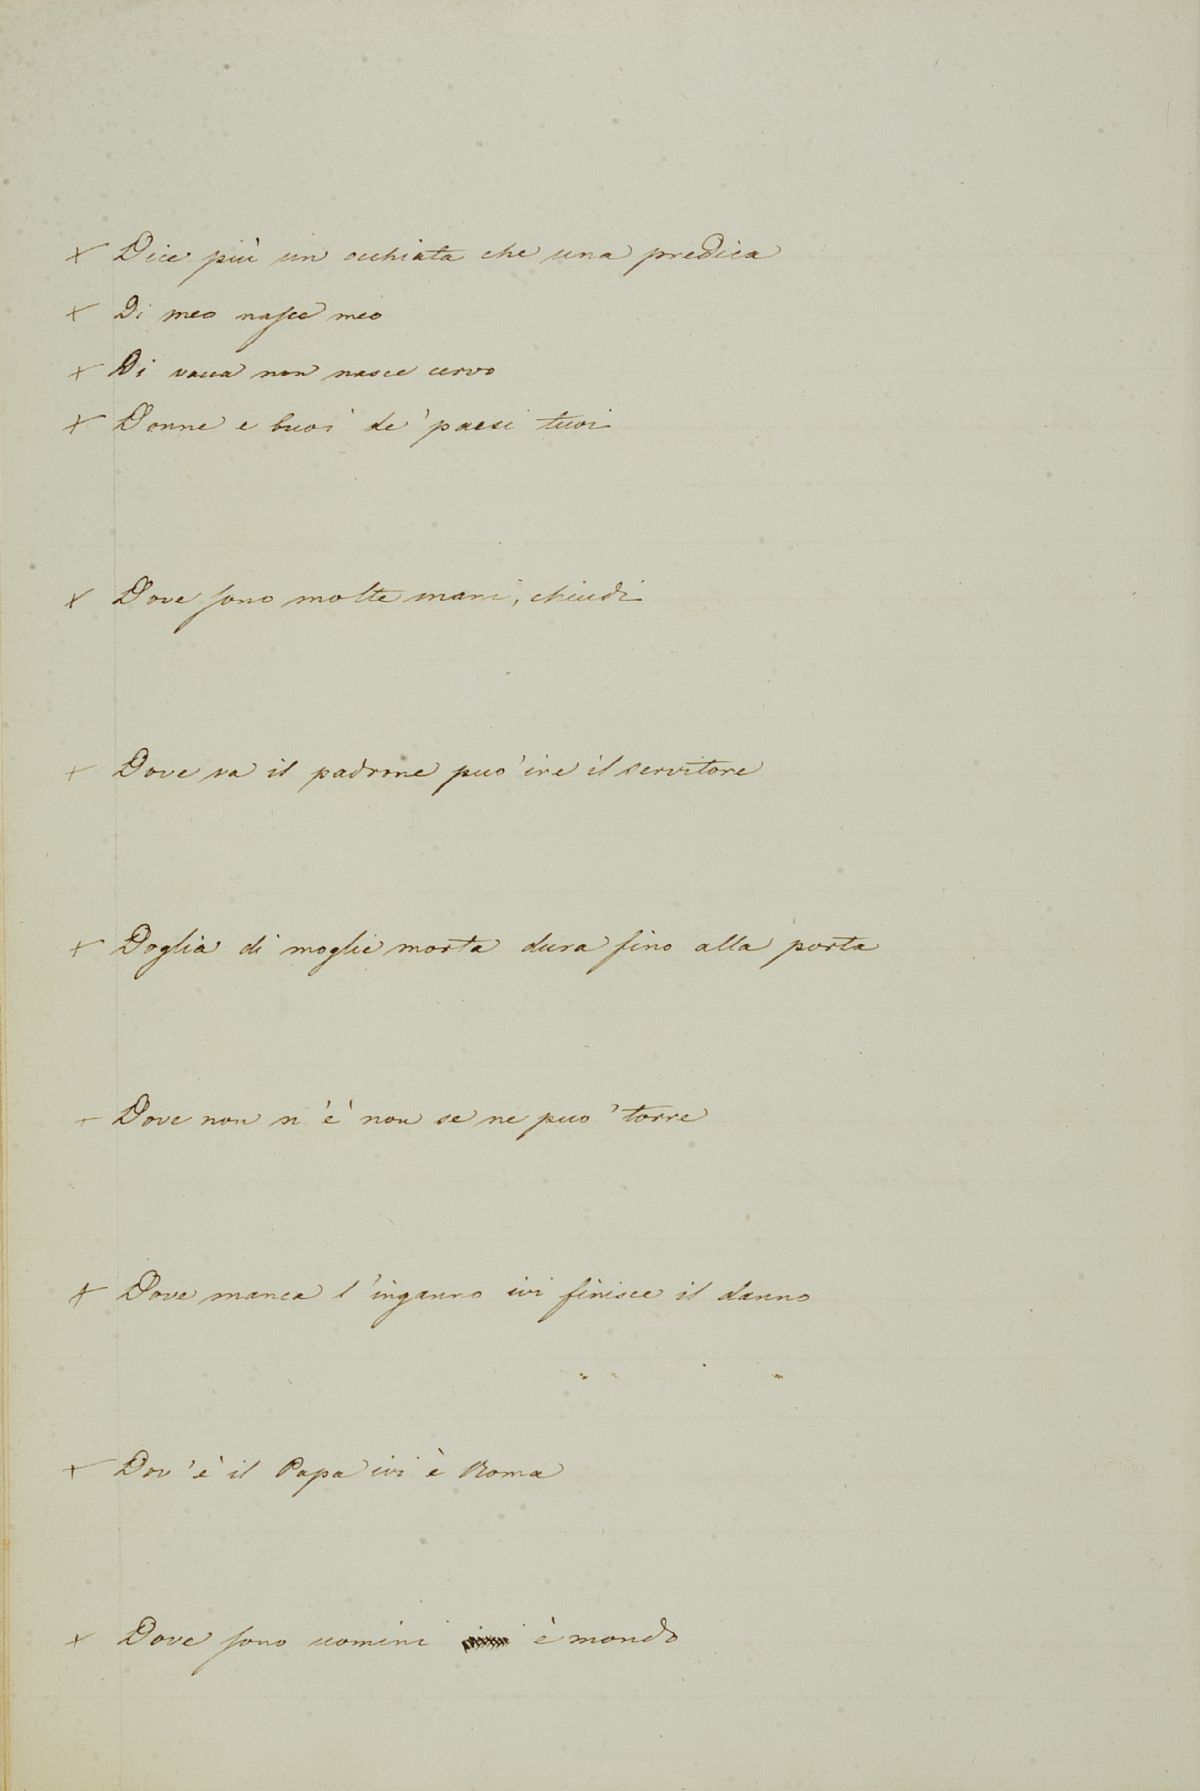 × Dice più un occhiata che una predica
× Di meo nasce meo
× Di vacca non nasce cervo
× Donne e buoi de' paesi tuoi
× Dove sono molte mani, chiudi
× Dove va il padrone puo' ire il servitore
× Doglia di moglie morta dura fino alla porta
Dove non n'è non se ne puo' torre
× Dove manca l'inganno ivi finisce il danno
× Dov'è il Papa ivi è Roma
× Dove sono uomini è mondo